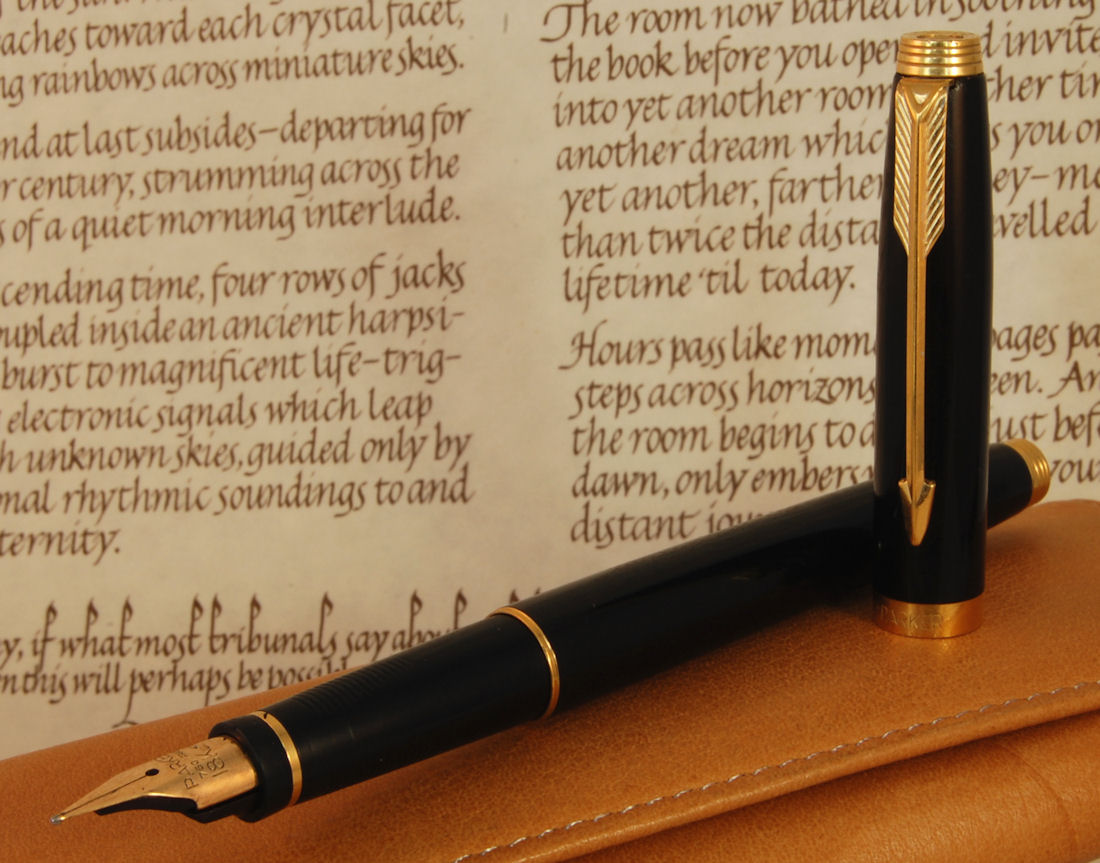 aches toward each crystal facet,
ng rainbows across miniature skies.
nd at last subsides–departing for
r century, strumming across the
s of a quiet morning interlude.
cending time, four rows of jacks
upled inside an ancient harpsi–
burst to magnificent life–trig–
electronic signals which leap
h unknown skies, guided only by
mal rhythmic soundings to and
ternity.
y, if what most tribunals say about
n this will perhaps be possibl
The room now bathed in soothing
the book before you open d invite
into yet another room ther tim
another dream which s you on
yet another, farther ey–mo
than twice the dista velled
lifetime 'til today.
Hours pass like mom pages pa
steps across horizons een. An
the room begins to d just befo
dawn, only embers you
distant jou
PARKER
PARKER
18K
750